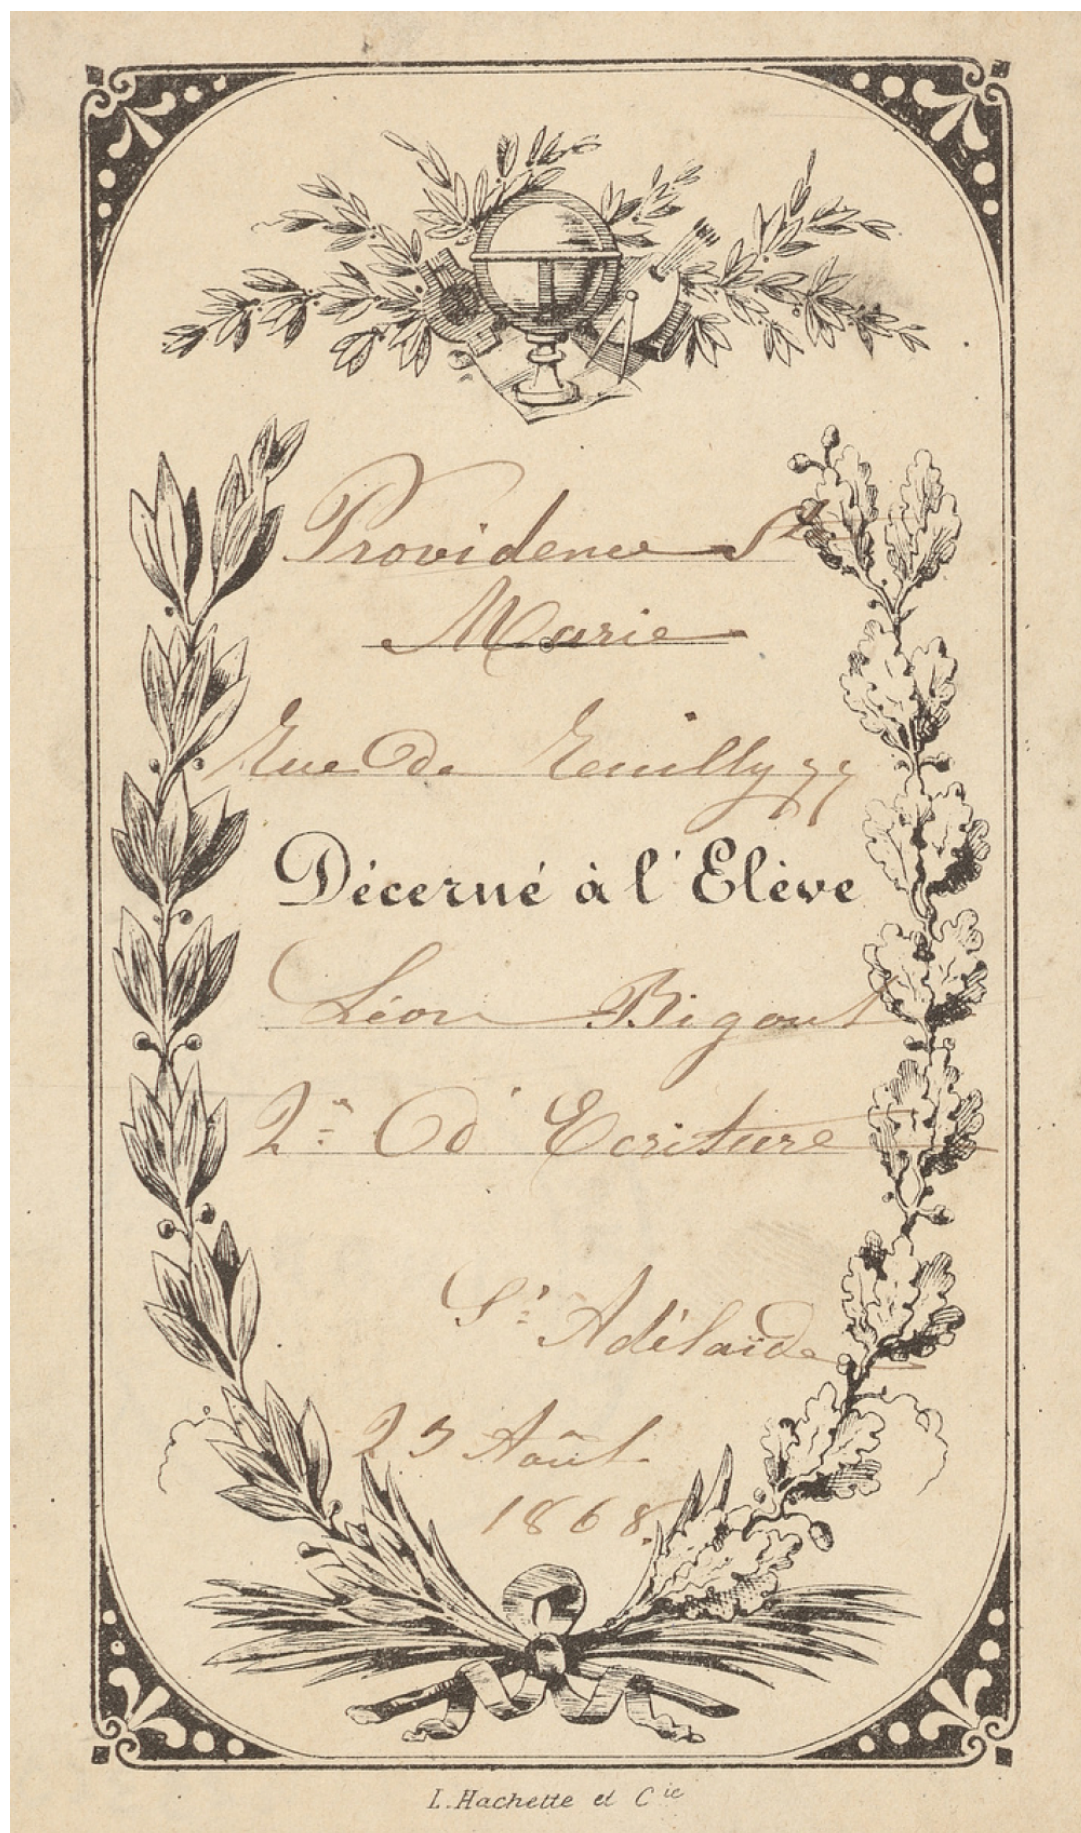 Providence Ste
Marie
Rue de Reuilly 77
Décerné à l'Elève
Léon Bigout
2e d'Ecriture
Sr Adélaïde
25 Août
1868.
L. Hachette et Cie